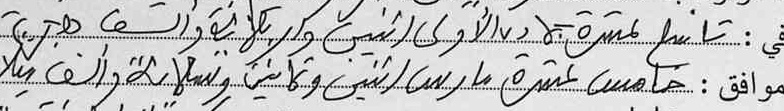 في : تاسع عشرة جمادى الأولى اثنين وأربعمائة وألف هجرية
موافق : خامس عشرة مارس اثنين وثمانين وتسعمائة وألف ميلا